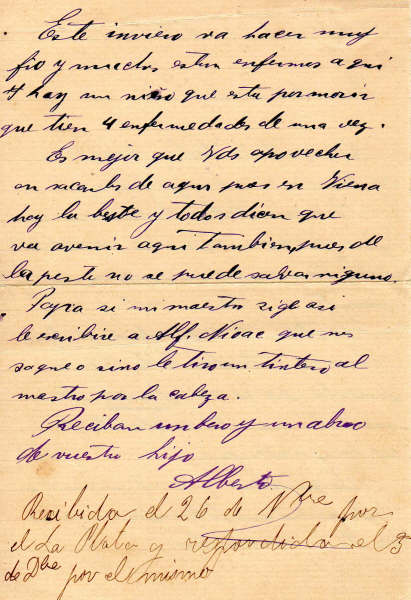 Este inviero va hacer muy
fio y muchos estan enfermos aqui
y hay un niño que esta por morir
que tien 4 enfermedades de una vez.
Es mejor que Vds apovechen
en sacarles de aqui pues en Viena
hay la beste y todos dicen que
va avenir aqui tambien, pues de
la peste no se puede salvar niguno.
Papa si mi maestro sige asi
le escribire a Alf. que nos
saque o sino le tiro un tintero al
mastro por la cabeza.
Reciban un beso y un abrao
de vuestro hijo
Alberto
Recibida el 26 de Nbre por
el La Plata y respondida el 3
de Dbre por el mismo